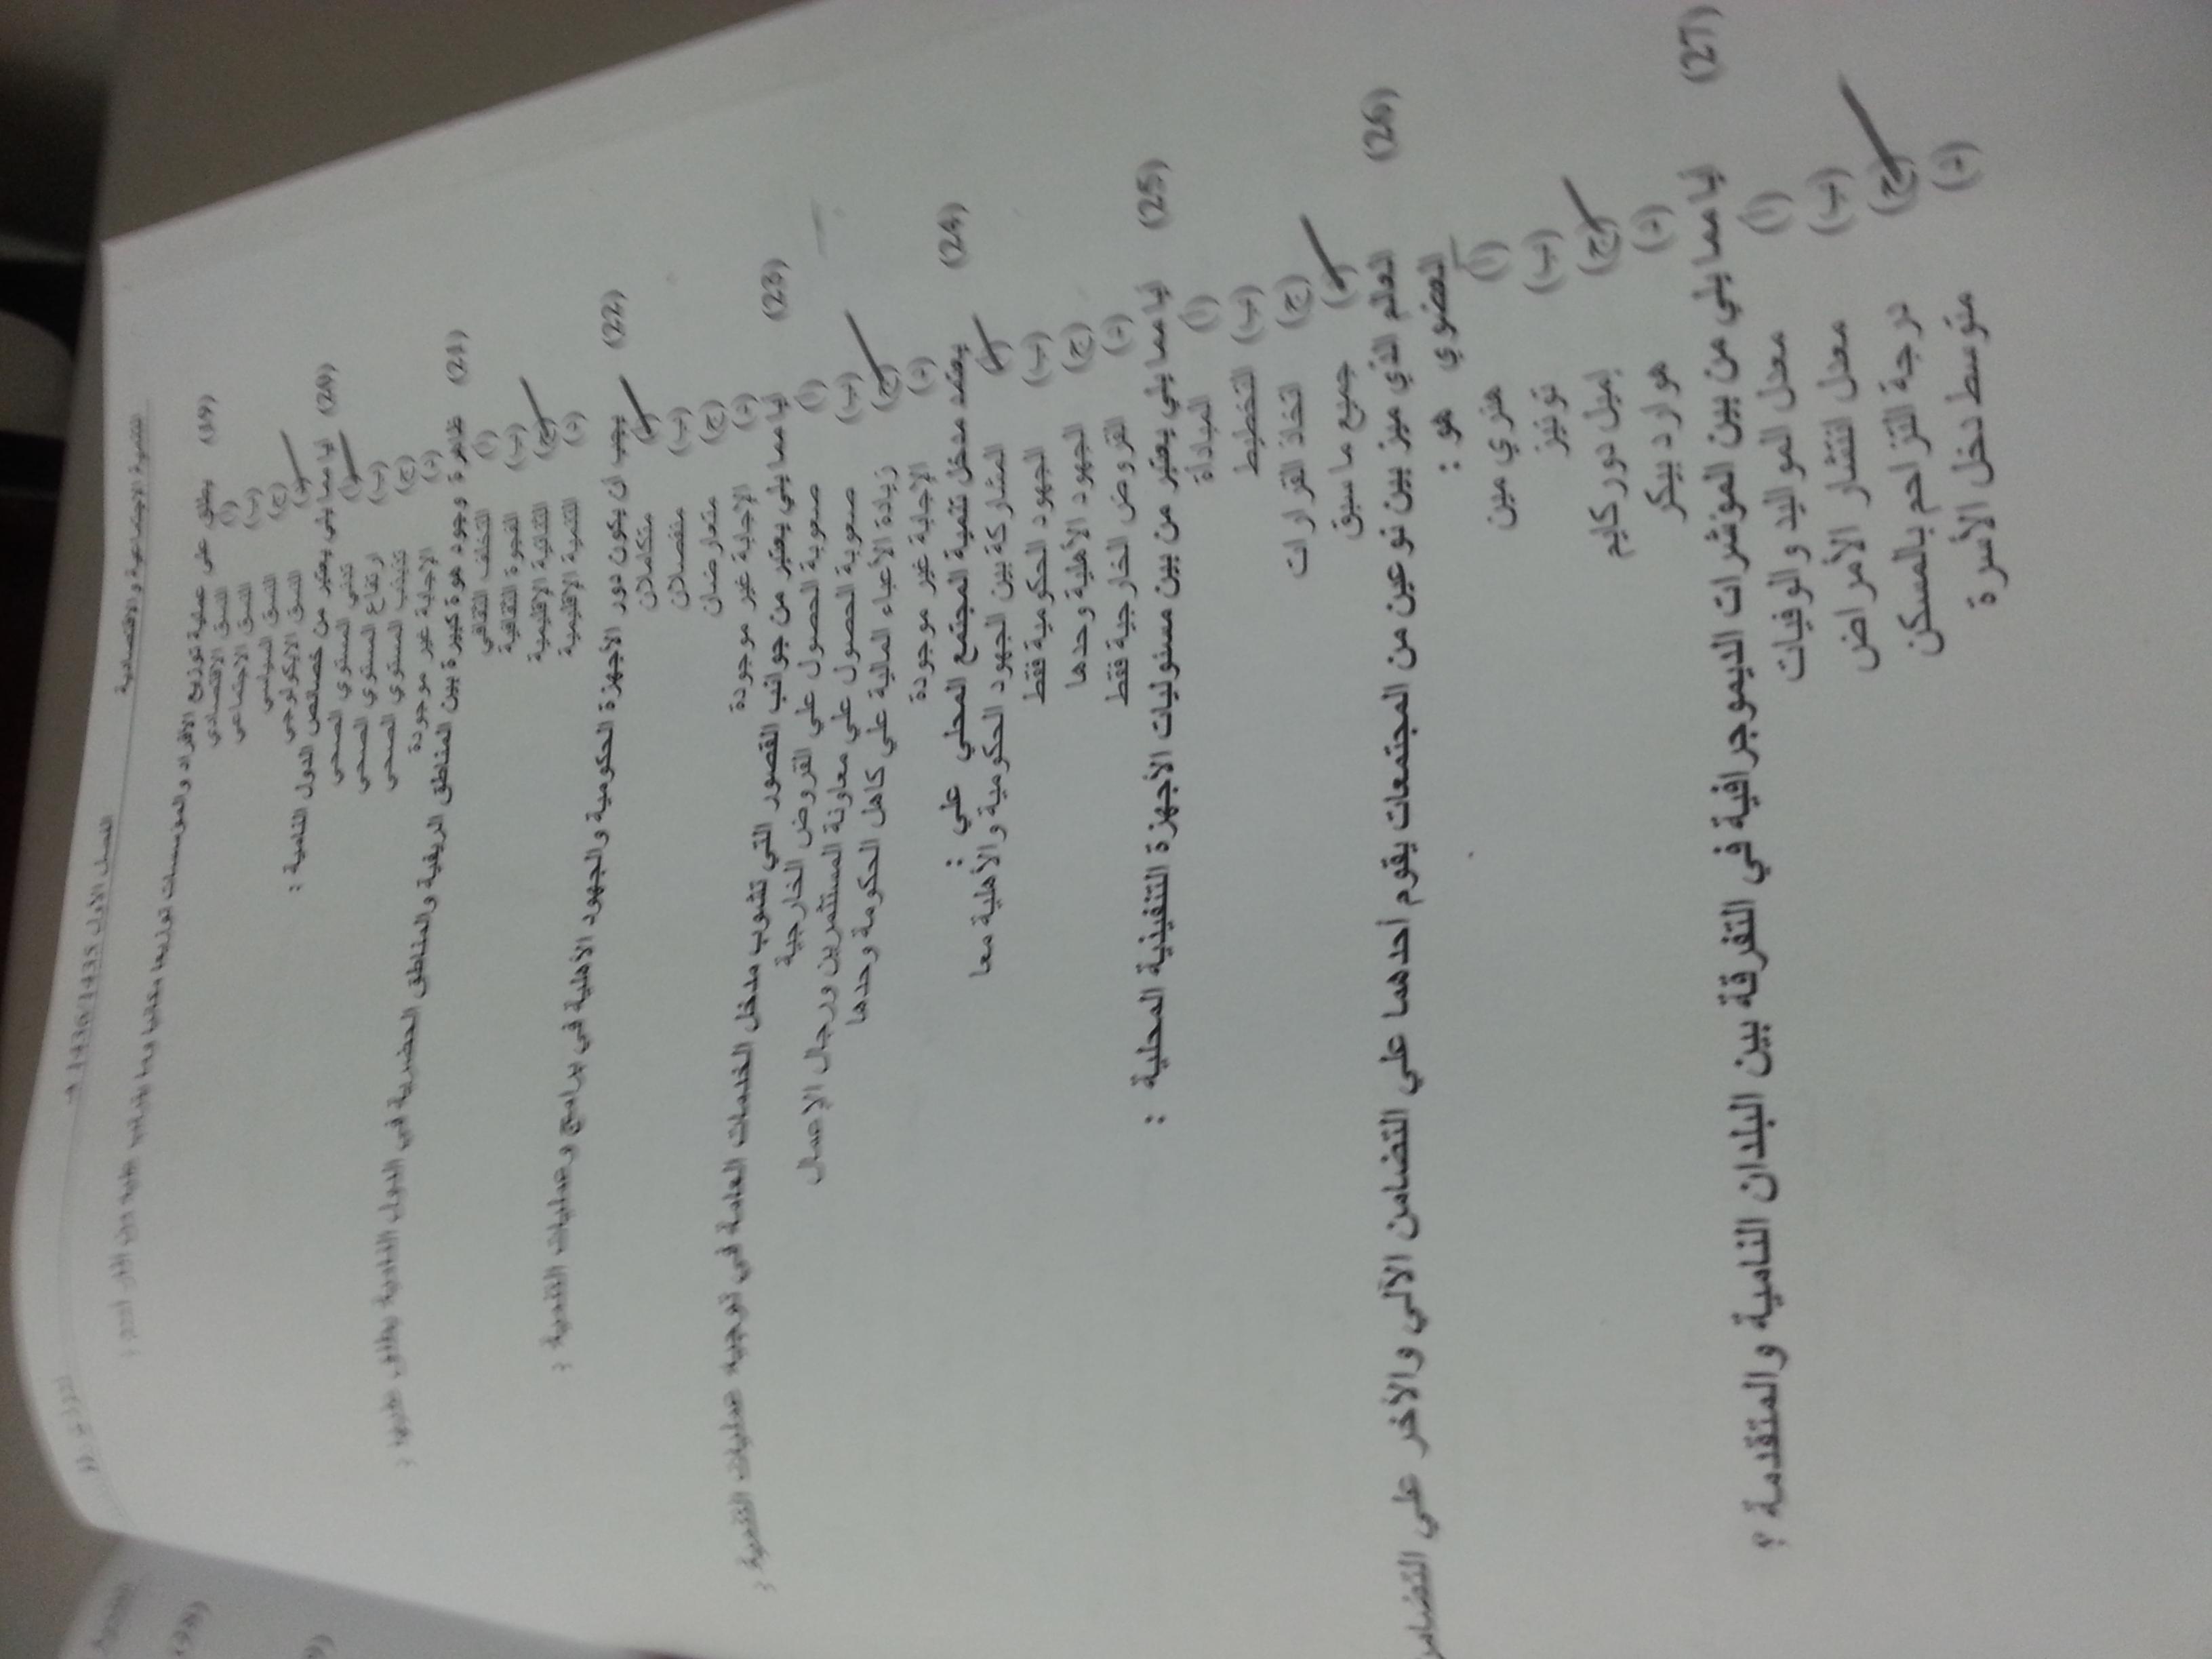 التنمية الاجتماعية والاقتصادية
الفصل الأول 1435/1436 هـ
(19) يطلق على عملية توزيع الأفراد والمؤسسات
(أ) النسق الاقتصادي
(ب) النسق الاجتماعي
(ج) النسق السياسي
(د) النسق الايكولوجي
(20) أيا مما يلي يعتبر من خصائص الدول النامية :
(أ) تدني المستوي الصحي
(ب) ارتفاع المستوي الصحي
(ج) تذبذب المستوي الصحي
(د) الإجابة غير موجودة
(21) ظاهرة وجود هوة كبيرة بين المناطق الريفية والمناطق الحضرية في الدول النامية يطلق عليها :
(أ) التخلف الثقافي
(ب) الفجوة الثقافية
(ج) الثنائية الإقليمية
(د) التنمية الإقليمية
(22) يجب أن يكون دور الأجهزة الحكومية والجهود الأهلية في برامج وعمليات التنمية :
(أ) متكاملان
(ب) منفصلان
(ج) متعارضان
(د) الإجابة غير موجودة
(23) أيا مما يلي يعتبر من جوانب القصور التي تشوب مدخل الخدمات العامة في توجيه عمليات التنمية :
(أ) صعوبة الحصول علي القروض الخارجية
(ب) صعوبة الحصول علي معاونة المستثمرين ورجال الإعمال
(ج) زيادة الأعباء المالية علي كاهل الحكومة وحدها
(د) الإجابة غير موجودة
(24) يعتمد مدخل تنمية المجتمع المحلي علي :
(أ) المشاركة بين الجهود الحكومية والأهلية معا
(ب) الجهود الحكومية فقط
(ج) الجهود الأهلية وحدها
(د) القروض الخارجية فقط
(25) أيا مما يلي يعتبر من بين مسئوليات الأجهزة التنفيذية المحلية :
(أ) المبادأة
(ب) التخطيط
(ج) اتخاذ القرارات
(د) جميع ما سبق
(26) العالم الذي ميز بين نوعين من المجتمعات يقوم أحدهما علي التضامن الآلي والآخر علي التضامن
العضوي هو :
(أ) هنري مين
(ب) تونيز
(ج) إميل دوركايم
(د) هوارد بيكر
(27) أيا مما يلي من بين المؤشرات الديموجرافية في التفرقة بين البلدان النامية والمتقدمة ؟
(أ) معدل المواليد والوفيات
(ب) معدل انتشار الأمراض
(ج) درجة التزاحم بالمسكن
(د) متوسط دخل الأسرة